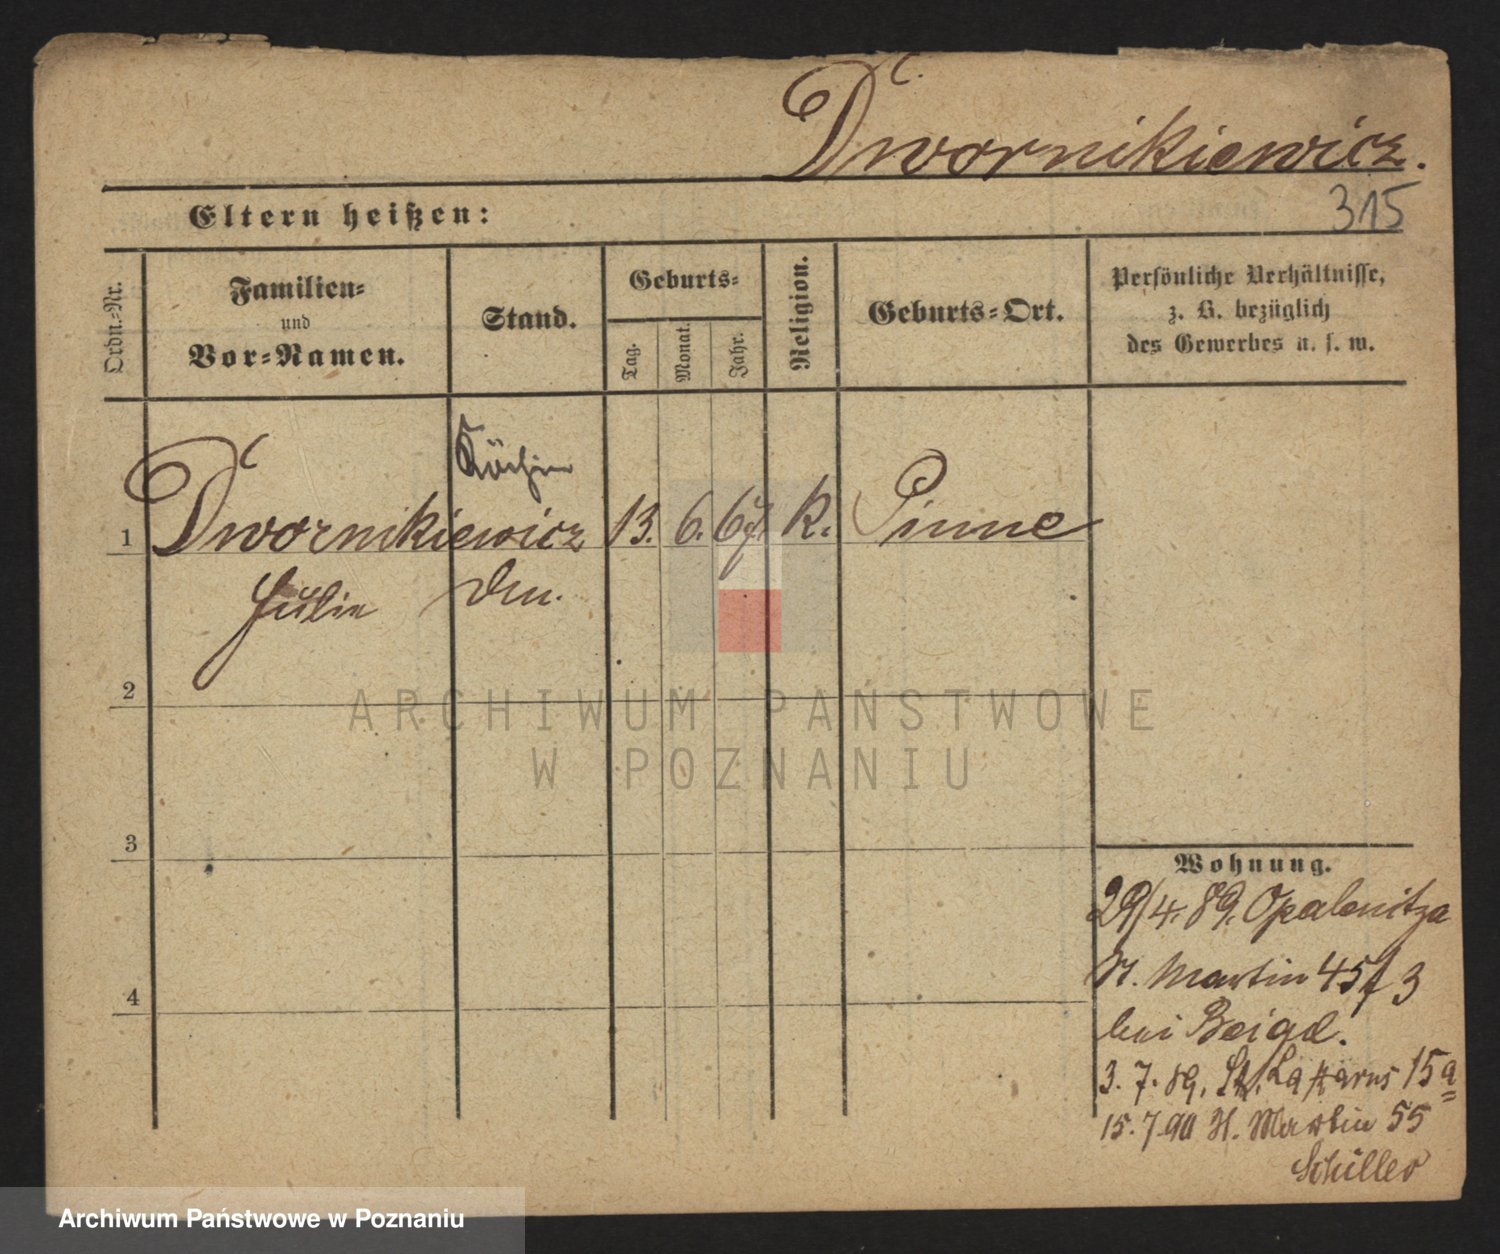 Dwornikiewicz.
315
Eltern heißen:
Ordn.-Nr.
Familien-
und
Vor-Namen.
Stand.
Geburts-
Tag.
Monat.
Jahr.
Religion.
Geburts-Ort.
Persönliche Verhältnisse,
z. B. bezüglich
des Gewerbes u. s. w.
Köchin
1 Dwornikiewicz 13. 6. 67 K. Pinne
Julie
2
3
4
Wohnung.
29/4. 89. Opalenitza
St. Martin 45
bei Beigel.
3. 7. 89. St. Lazarus 15a
15. 7. 90 St. Martin 55
Schiller
ARCHIWUM PAŃSTWOWE
W POZNANIU
Archiwum Państwowe w Poznaniu